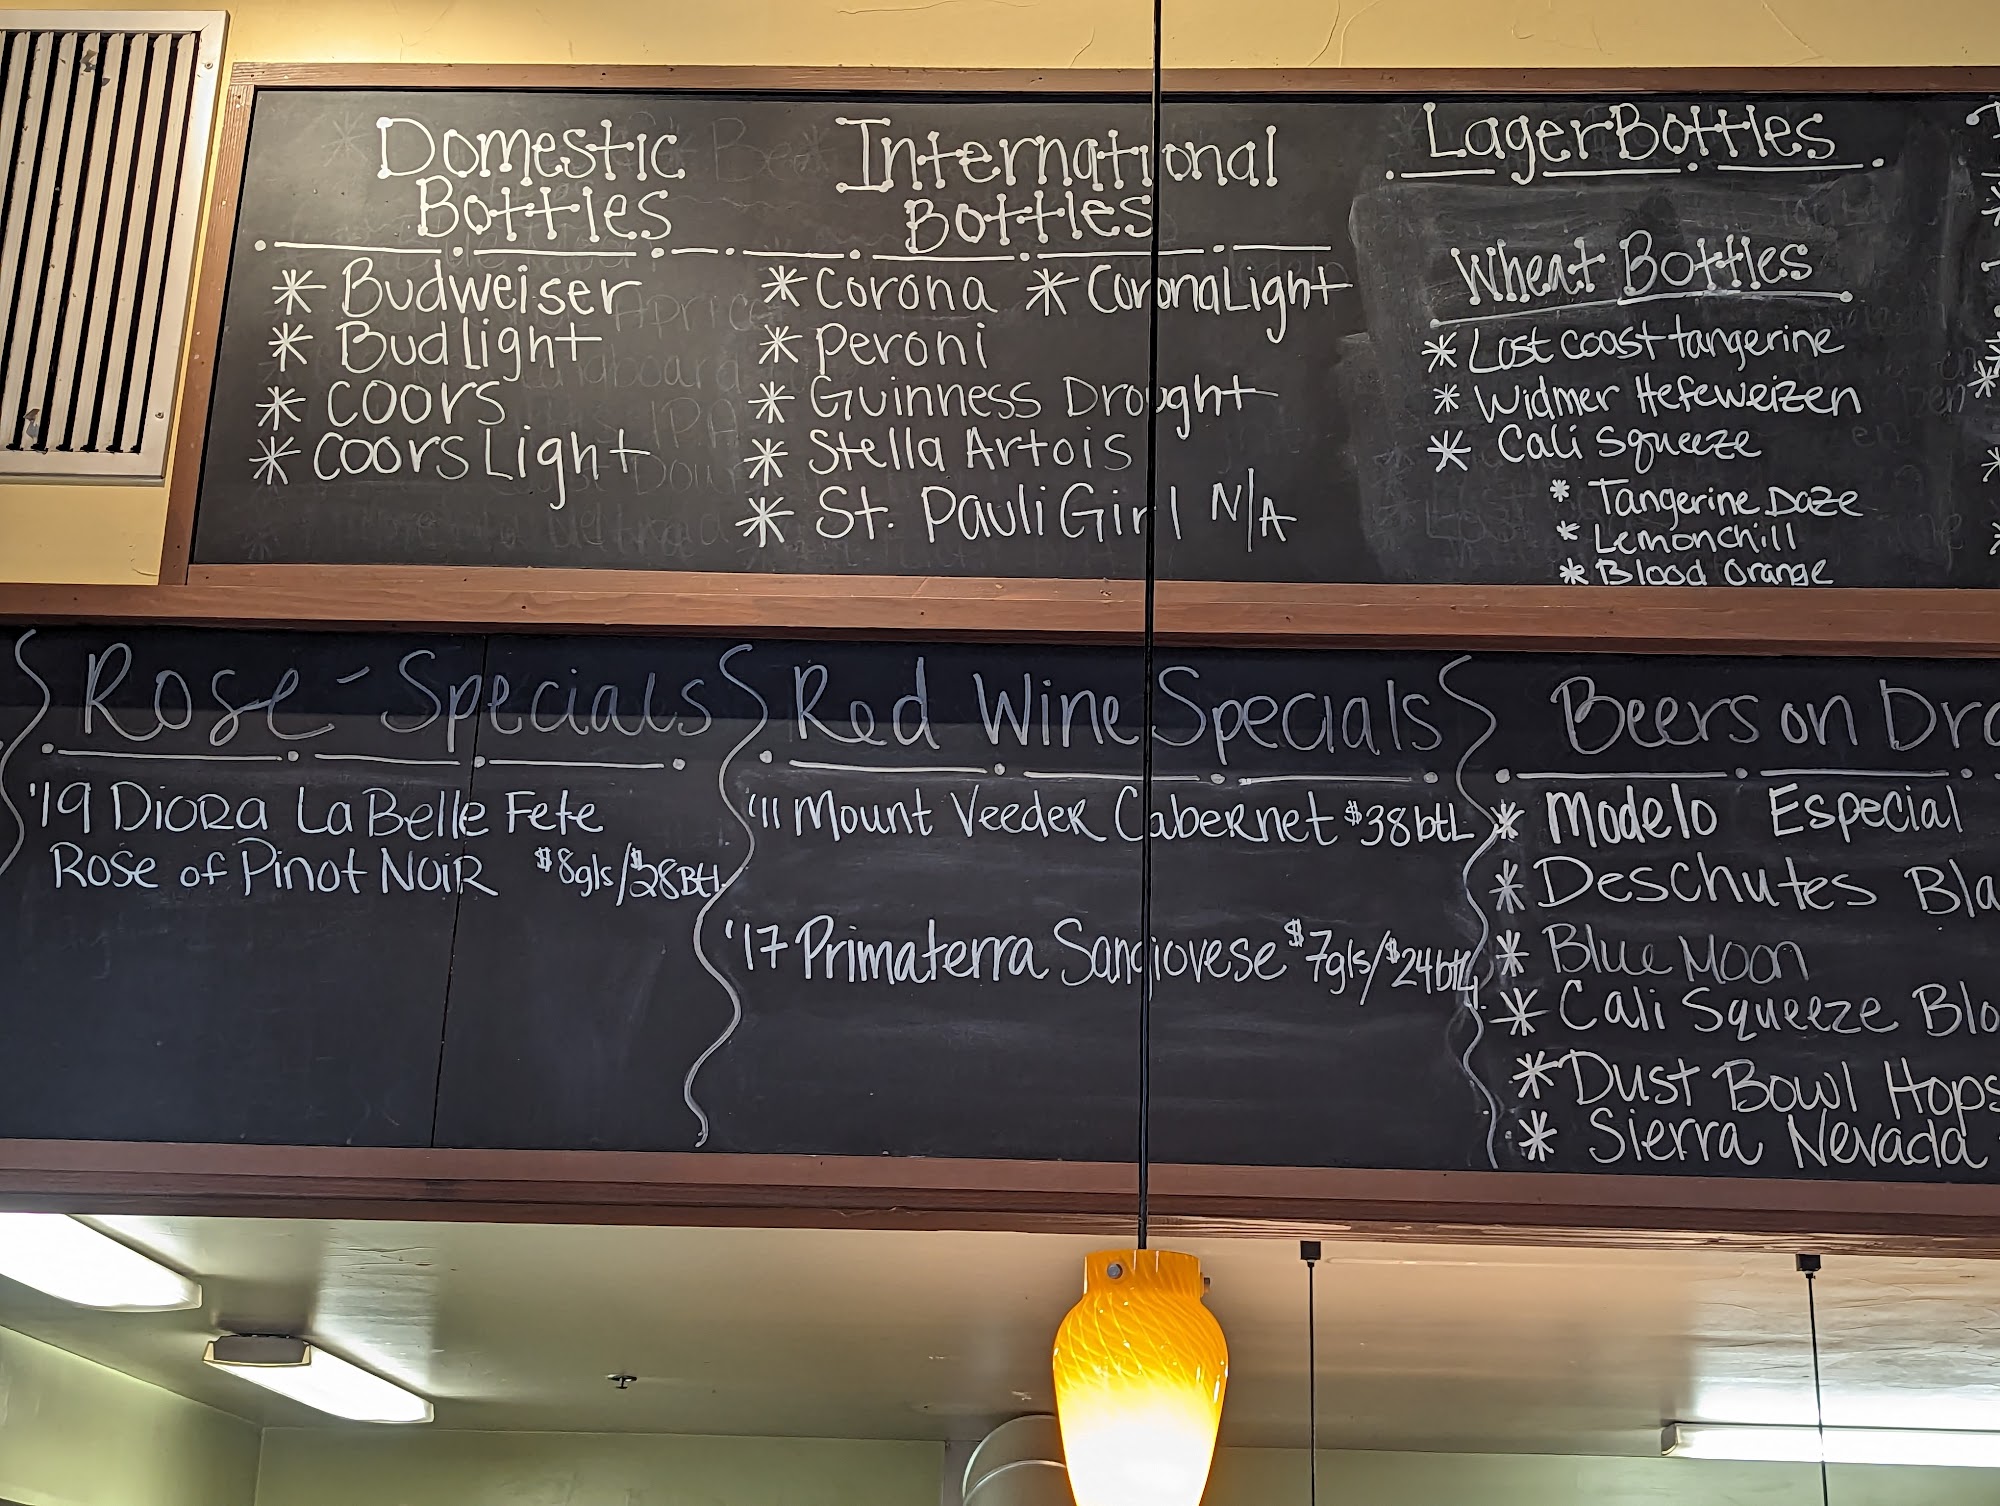 Domestic
Bottles
* Budweiser
* Bud Light
* Coors
* Coors Light
International
Bottles
* Corona * Corona Light
* Peroni
* Guinness Drought
* Stella Artois
* St. Pauli Girl N/A
Lager Bottles
Wheat Bottles
* Lost coast tangerine
* Widmer Hefeweizen
* Cali Squeeze
* Tangerine Daze
* Lemonchill
* Blood Orange
Rosé Specials
'19 Diora La Belle Fete
Rose of Pinot Noir $8gls/$28Btl
Red Wine Specials
'11 Mount Veeder Cabernet $38btl
'17 Primaterra Sangiovese $7gls/$24btl
Beers on Dra
* Modelo Especial
* Deschutes Bla
* Blue Moon
* Cali Squeeze Blo
* Dust Bowl Hops
* Sierra Nevada